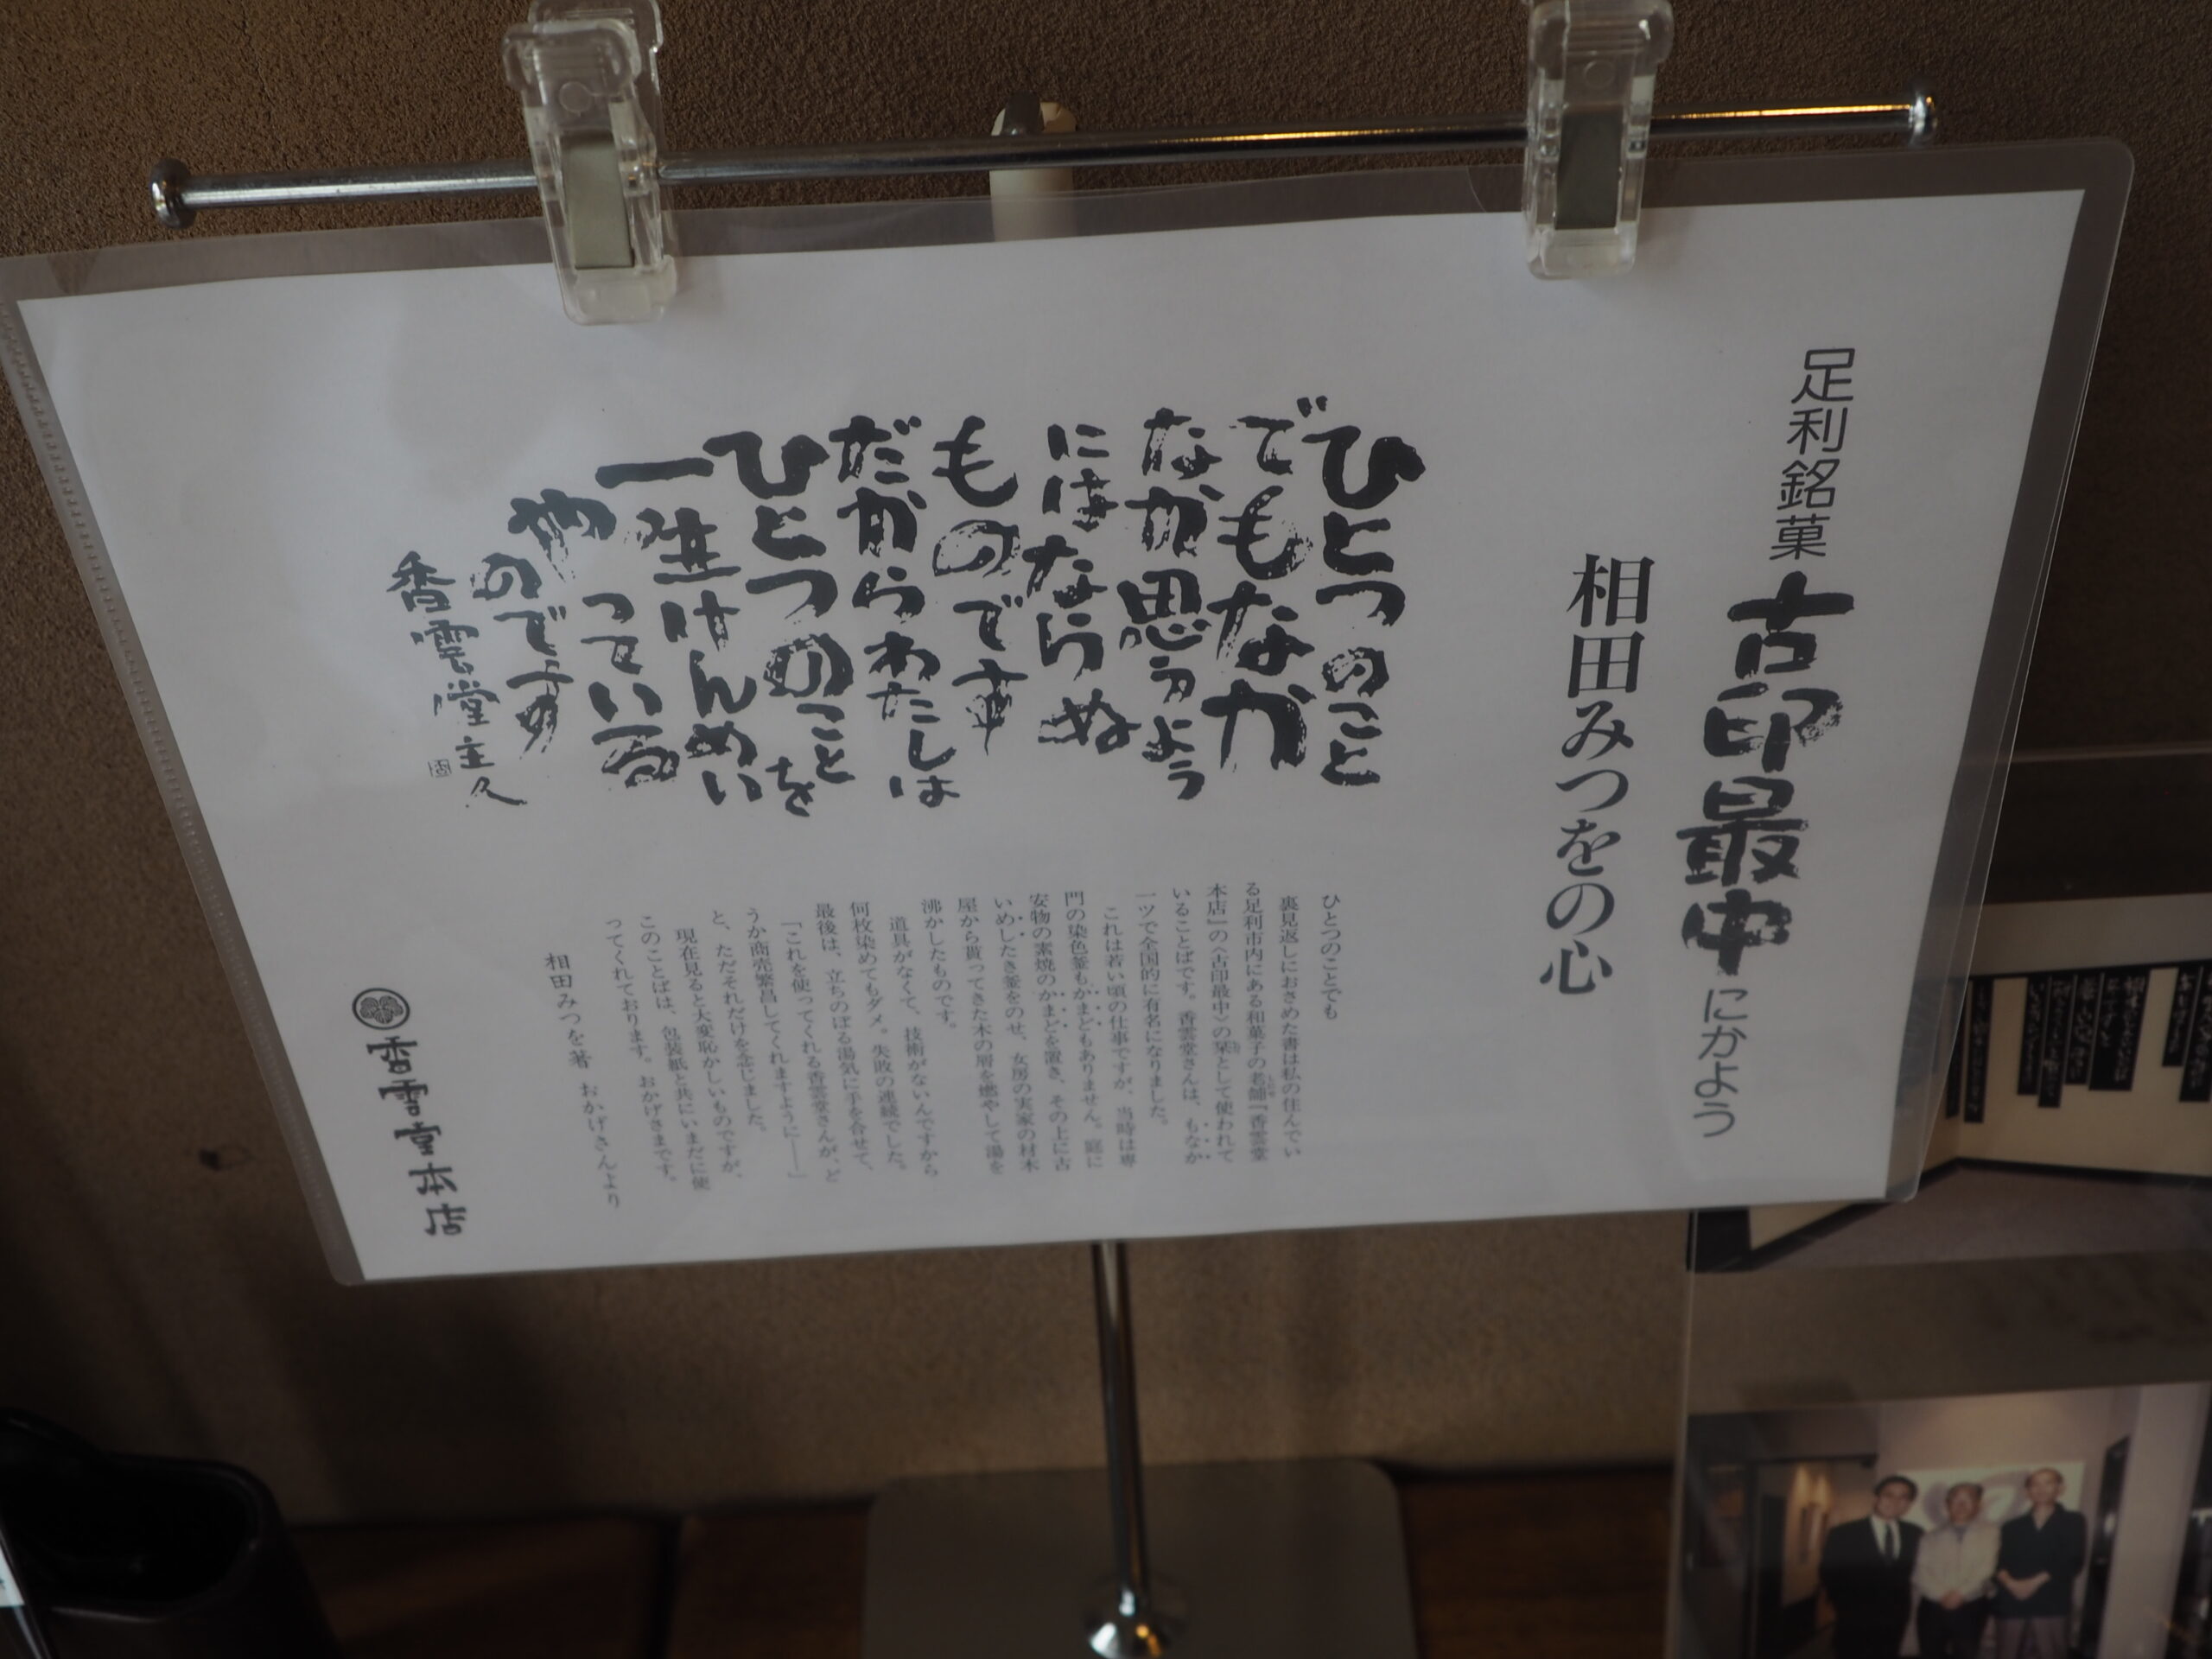 足利銘菓 古印最中 にかよう
相田みつをの心
ひとつのこと
でもなか
なか思うよう
にはならぬ
ものです
だからわたしは
ひとつのことを
一生けんめい
やっている
のです
香雲堂主人
ひとつのことでも
裏見返しにおさめた書は私の住んでい
る足利市内にある和菓子の老舗「香雲堂
本店」の〈古印最中〉の栞として使われて
いることばです。香雲堂さんは、もなか
一ツで全国的に有名になりました。
これは若い頃の仕事ですが、当時は専
門の染色釜もかまどもありません。庭に
安物の素焼のかまどを置き、その上に古
いめしたき釜をのせ、女房の実家の材木
屋から貰ってきた木の屑を燃やして湯を
沸かしたものです。
道具がなくて、技術がないんですから
何枚染めてもダメ。失敗の連続でした。
最後は、立ちのぼる湯気に手を合せて、
「これを使ってくれる香雲堂さんが、ど
うか商売繁昌してくれますように――」
と、ただそれだけを念じました。
現在見ると大変恥かしいものですが、
このことばは、包装紙と共にいまだに使
ってくれております。おかげさまです。
相田みつを著 おかげさんより
香雲堂本店